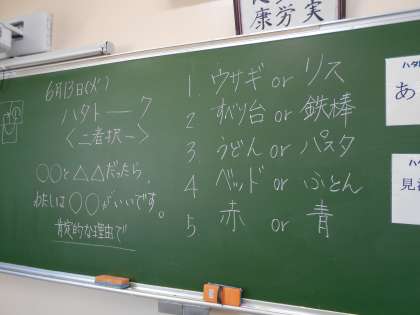 康労実
6月13日(火)
ハタトーク
<二者択一>
○○と△△だったら、
わたしは○○がいいです。
肯定的な理由で
1. ウサギ or リス
2. すべり台 or 鉄棒
3. うどん or パスタ
4. ベッド or ふとん
5. 赤 or 青
ハタ
あ
ハ
見